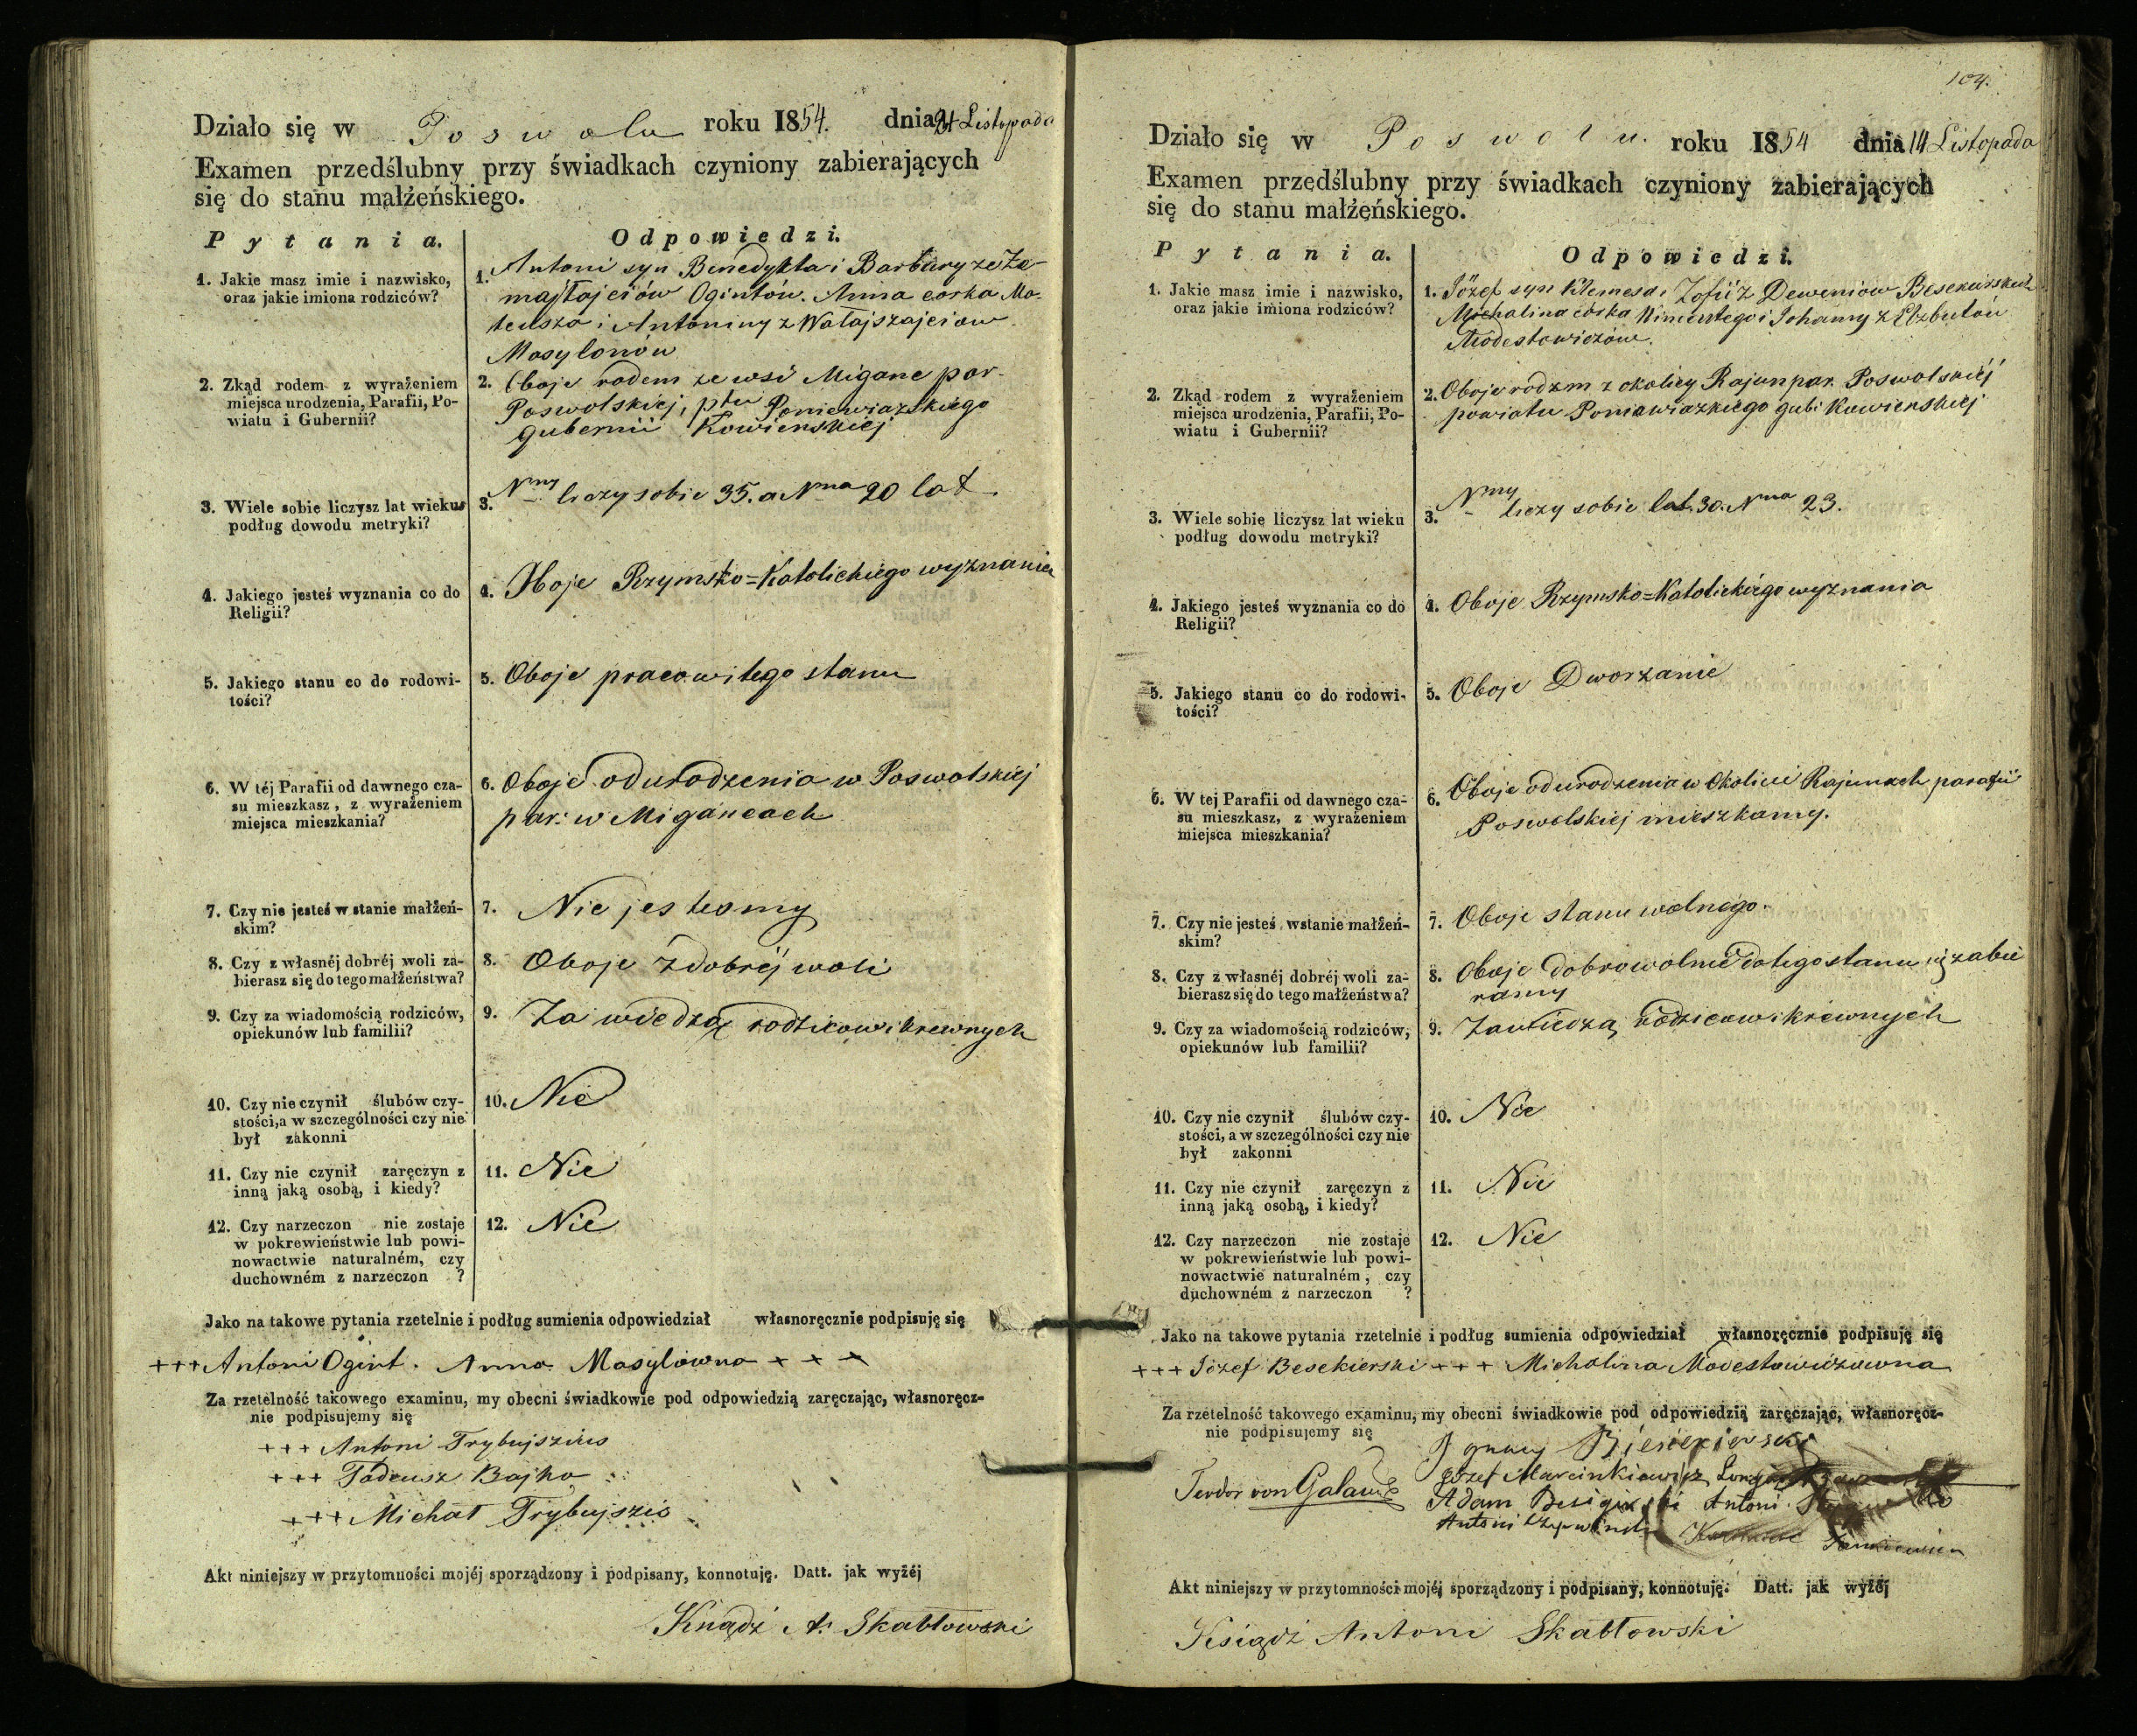 Działo się w Poswolu roku 1854. dnia 21 Listopada
Examen przedślubny przy świadkach czyniony zabierających
się do stanu małżeńskiego.
Pytania. Odpowiedzi.
1. Jakie masz imie i nazwisko,
oraz jakie imiona rodziców?
1. Antoni syn Benedykta i Barbary ze Że-
majtajciów Ogintów. Anna corka Ma-
teusza i Antoniny z Watajszajciow
Masylonów
2. Zkąd rodem z wyrażeniem
miejsca urodzenia, Parafii, Po-
wiatu i Gubernii?
2. Oboje rodem ze wsi Migane par.
Poswolskiej, ptu Poniewiazskiego
gubernii Kowienskiej
3. Wiele sobie liczysz lat wieku
podług dowodu metryki?
3. Nny liczy sobie 35. a Nna 20 lat.
4. Jakiego jesteś wyznania co do
Religii?
4. Oboje Rzymsko=Katolickiego wyznania
5. Jakiego stanu co do rodowi-
tości?
5. Oboje pracowitego stanu
6. W téj Parafii od dawnego cza-
su mieszkasz, z wyrażeniem
miejsca mieszkania?
6. Oboje od urodzenia w Poswolskiej
par: w Migancach
7. Czy nie jesteś w stanie małżeń-
skim?
7. Nie jestesmy
8. Czy z własnéj dobréj woli za-
bierasz się do tego małżeństwa?
8. Oboje z dobréj woli
9. Czy za wiadomością rodziców,
opiekunów lub familii?
9. Za wiedzą rodzicow i krewnych
10. Czy nie czynił ślubów czy-
stości, a w szczególności czy nie
był zakonni
10. Nie
11. Czy nie czynił zaręczyn z
inną jaką osobą, i kiedy?
11. Nie
12. Czy narzeczon nie zostaje
w pokrewieństwie lub powi-
nowactwie naturalném, czy
duchowném z narzeczon ?
12. Nie
Jako na takowe pytania rzetelnie i podług sumienia odpowiedział własnoręcznie podpisuję się
+++ Antoni Ogint. Anna Masylowna + + +
Za rzetelność takowego examinu, my obecni świadkowie pod odpowiedzią zaręczając, własnoręcz-
nie podpisujemy się
+++ Antoni Trybujszius
+++ Tadeusz Bajko
+++ Michał Trybujszis
Akt niniejszy w przytomności mojéj sporządzony i podpisany, konnotuję. Datt. jak wyżéj
Xiądz A. Skabłowski
104.
Działo się w Poswolu. roku 1854 dnia 14 Listopada
Examen przedślubny przy świadkach czyniony zabierających
się do stanu małżeńskiego.
Pytania. Odpowiedzi.
1. Jakie masz imie i nazwisko,
oraz jakie imiona rodziców?
1. Józef syn Klemesa i Zofii z Deweniow Besekirskich
Michalina córka Wincentego i Johanny z Elzbutów
Modestowiczów.
2. Zkąd rodem z wyrażeniem
miejsca urodzenia, Parafii, Po-
wiatu i Gubernii?
2. Oboje rodem z okolicy Rajun par. Poswolskiéj
powiatu Poniawiazkiego gubi Kowienskiej
3. Wiele sobie liczysz lat wieku
podług dowodu metryki?
3. Nny liczy sobie lat. 30. Nna 23.
4. Jakiego jesteś wyznania co do
Religii?
4. Oboje Rzymsko=Katolickiégo wyznania
5. Jakiego stanu co do rodowi-
tości?
5. Oboje Dworzanie
6. W tej Parafii od dawnego cza-
su mieszkasz, z wyrażeniem
miejsca mieszkania?
6. Oboje od urodzenia w Okolicie Rajunach parafii
Poswolskiej mieszkamy.
7. Czy nie jesteś wstanie małżeń-
skim?
7. Oboje stanu wolnego.
8. Czy z własnéj dobréj woli za-
bierasz się do tego małżeństwa?
8. Oboje dobrowolnie do tego stanu się zabie
ramy
9. Czy za wiadomością rodziców,
opiekunów lub familii?
9. Za wiedzą rodzicow i krewnych
10. Czy nie czynił ślubów czy-
stości, a w szczególności czy nie
był zakonni
10. Nie
11. Czy nie czynił zaręczyn z
inną jaką osobą, i kiedy?
11. Nie
12. Czy narzeczon nie zostaje
w pokrewieństwie lub powi-
nowactwie naturalném, czy
duchowném z narzeczon ?
12. Nie
Jako na takowe pytania rzetelnie i podług sumienia odpowiedział własnoręcznie podpisuję się
+++ Józef Besekierski +++ Michalina Modestowiczowna
Za rzetelność takowego examinu, my obecni świadkowie pod odpowiedzią zaręczając, własnoręcz-
nie podpisujemy się
Ignacy Biesiekierski
Józef Marcinkiewicz
Teodor von Galau
Adam Besigirski Antoni
Antoni
Akt niniejszy w przytomności mojéj sporządzony i podpisany, konnotuję. Datt. jak wyżéj
Xsiądz Antoni Skabłowski